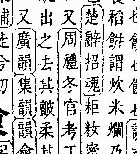 稻餅謂炊米爛乃
楚辭招魂粔籹蜜
又周禮冬官考工
出之去其皽柔其
又廣韻集韻韻會